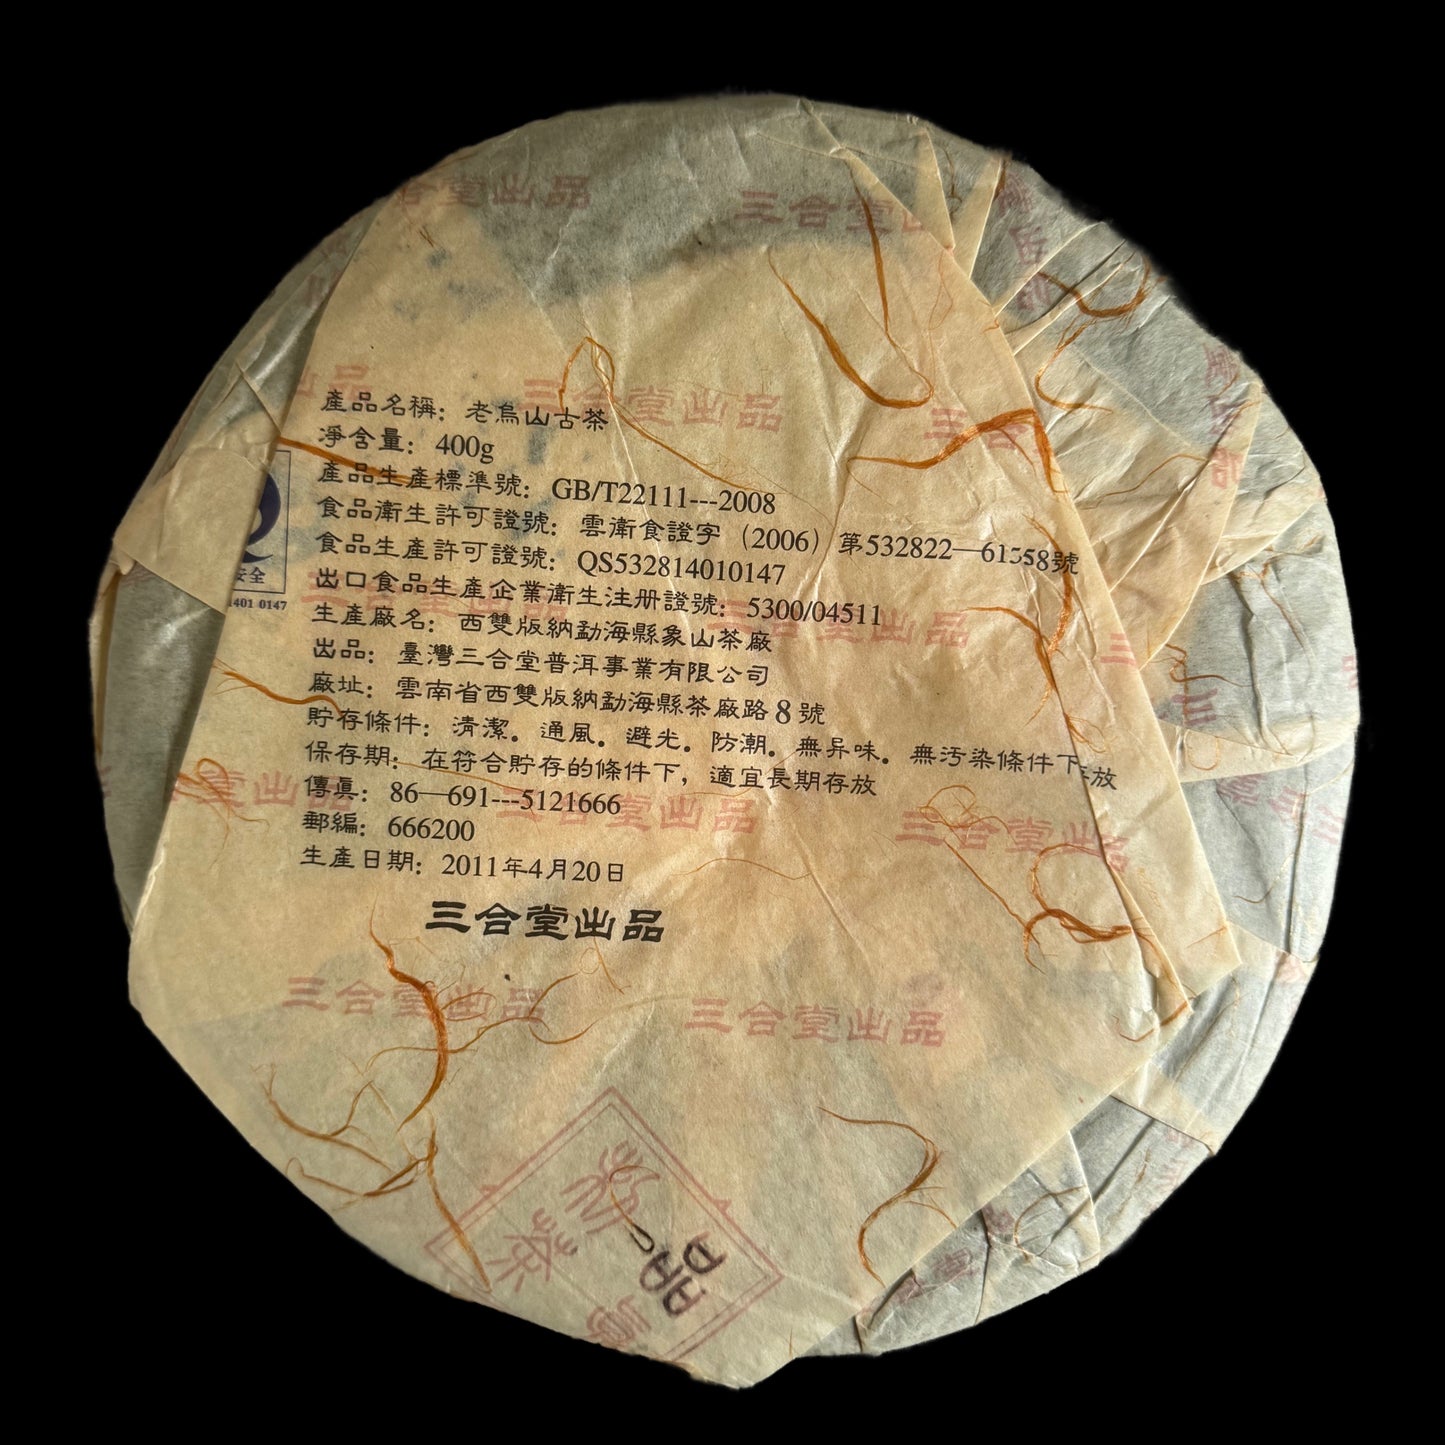 三合堂出品
三合堂出品
三合堂出品
產品名稱：老烏山古茶
淨含量：400g
產品生產標準號：GB/T22111---2008
食品衛生許可證號：雲衛食證字（2006）第532822—61558號
食品生產許可證號：QS532814010147
出口食品生產企業衛生注册證號：5300/04511
生產廠名：西雙版納勐海縣象山茶廠
出品：臺灣三合堂普洱事業有限公司
廠址：雲南省西雙版納勐海縣茶廠路8號
貯存條件：清潔。通風。避光。防潮。無异味。無汚染條件下存放
保存期：在符合貯存的條件下，適宜長期存放
傳眞：86—691---5121666
郵編：666200
生產日期：2011年4月20日
三合堂出品
安全
1401 0147
三合堂出品
三合堂出品
三合堂出品
三合堂出品
三合堂出品
三合堂出品